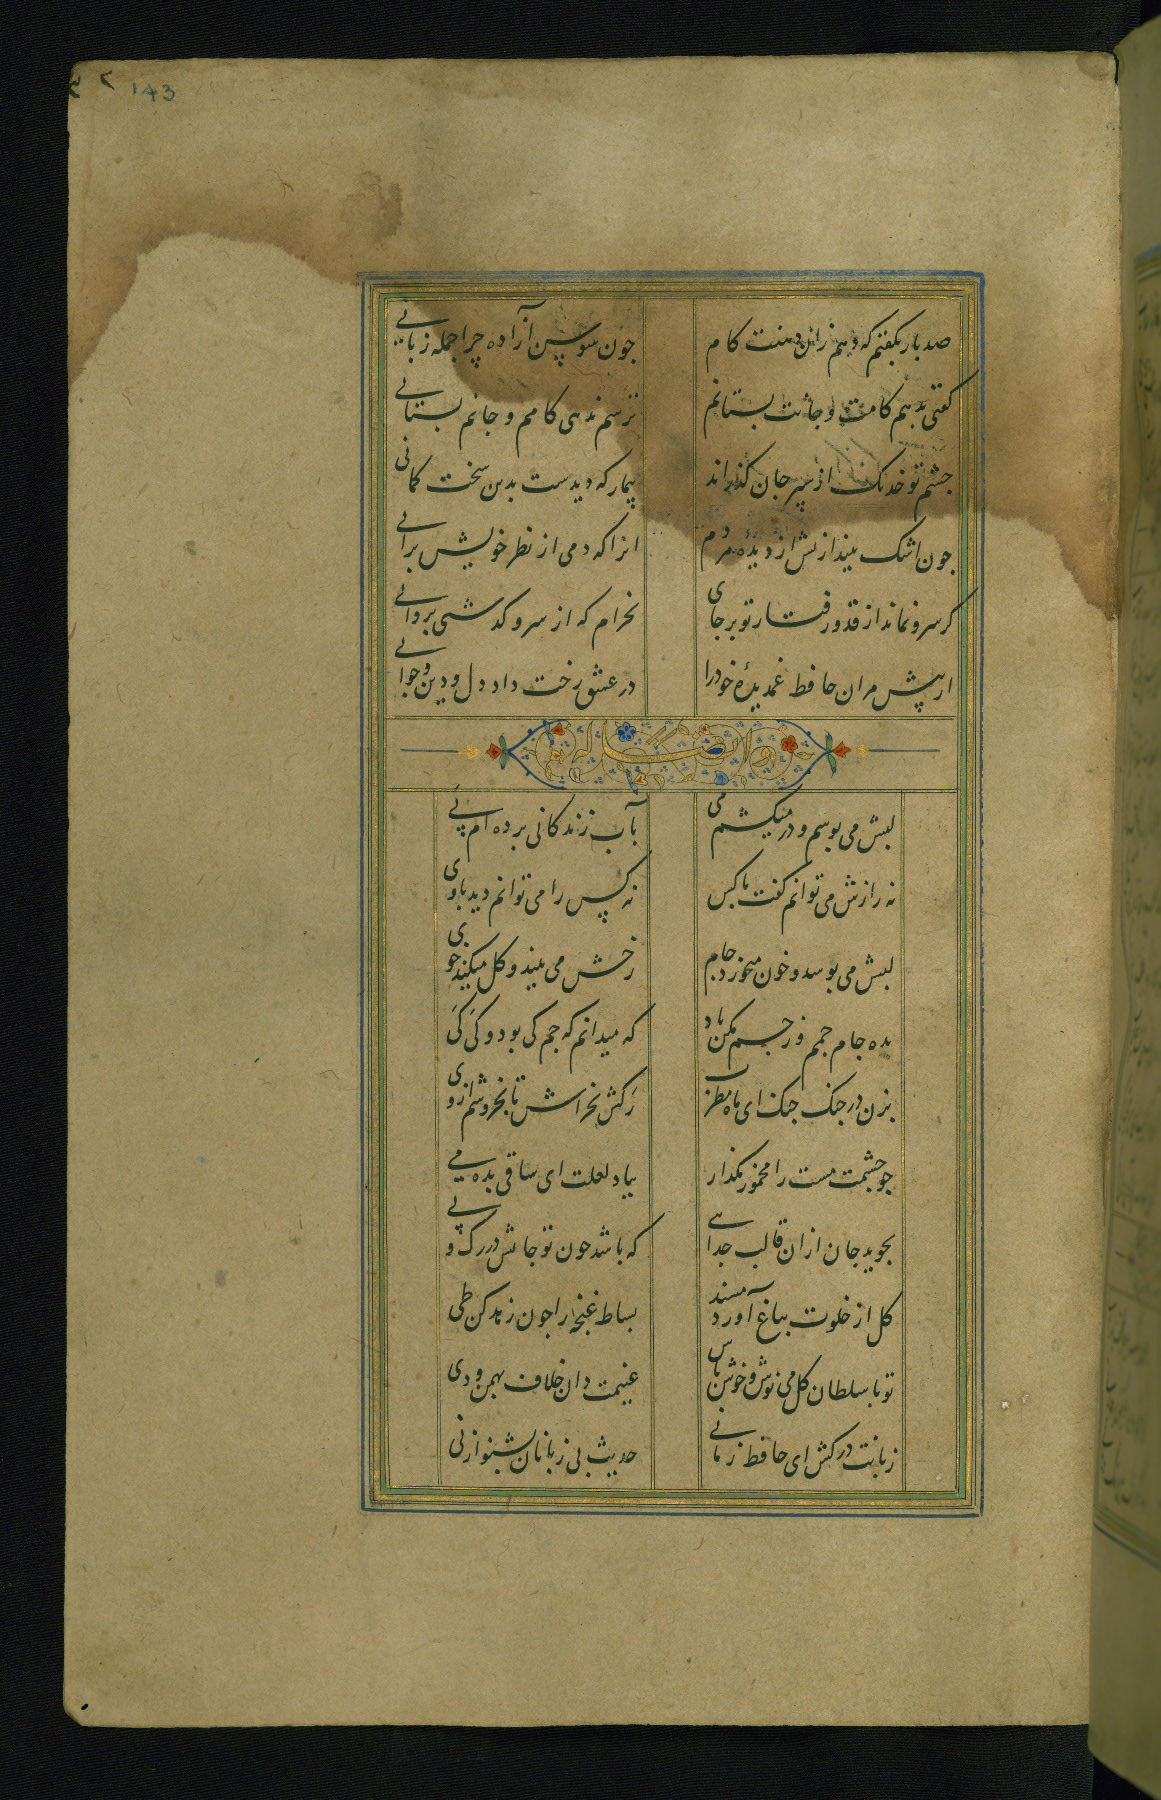 143
صد بار بکفتم که دهم زان دهنت کام
جون سوسن آزاده چرا جمله زبانی
کفتی بدهم کامت و جانت بستانم
ترسم ندهی کامم و جانم بستانی
چشم تو خدنک از سپر جان کذراند
بیمار که دیدست بدین سخت کمانی
جون اشک بیندازیش از دیده مردم
انرا که دمی از نظر خویش برانی
کر سرو نماند از قد و رفتار تو بر جای
بخرام که از سرو کدشتی بروانی
از پیش مران حافظ غمدیدهٔ خود را
در عشق رخت داد دل و دین و جوانی
وله ایضا
لبش می بوسم و در میکشم می
بآب زندکانی برده ام پی
نه رازش می توانم کفت با کس
نه کس را می توانم دید با وی
لبش می بوسد و خون میخورد جام
رخش می بیند و کل میکند خوی
بده جام جم و از جم مکن یاد
که میداند که جم کی بود و کی کی
بزن در جنک جنک ای ماه مطرب
رکش بخراش تا بخروشم از وی
جو چشمت مست را مخمور مکذار
بیاد لعلت ای ساقی بده می
بجوید جان ازان قالب جدایی
که باشد خون تو جانش در رک و پی
کل از خلوت بباغ آورد مسند
بساط غنچه را جون زهد کن طی
تو با سلطان کل می نوش و خوش باش
غنیمت دان خلاف بهمن و دی
زبانت درکش ای حافظ زمانی
حدیث بی زبانان بشنو از نی